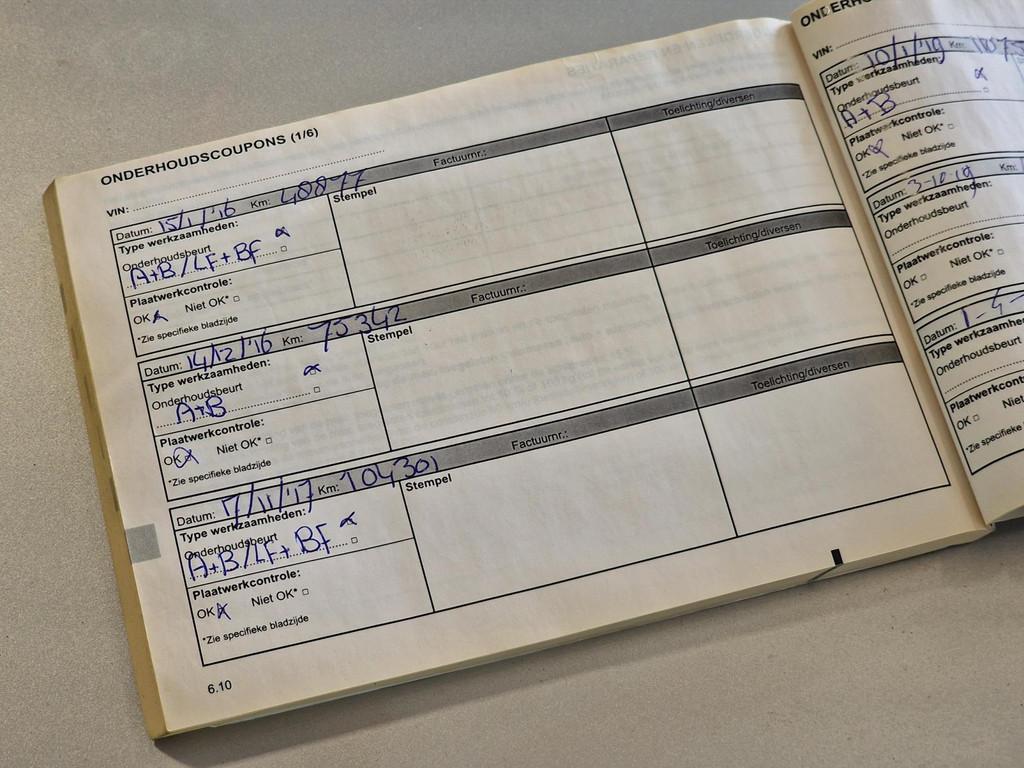 ONDERHOUDSCOUPONS (1/6)
VIN:
Datum: 15/1/'16 Km: 48877 Factuurnr.: Toelichting/diversen
Type werkzaamheden: Stempel
Onderhoudsbeurt
A+B/LF+BF
Plaatwerkcontrole:
OK Niet OK*
*Zie specifieke bladzijde
Datum: 14/12/'16 Km: 75342 Factuurnr.: Toelichting/diversen
Type werkzaamheden: Stempel
Onderhoudsbeurt
A+B
Plaatwerkcontrole:
OK Niet OK*
*Zie specifieke bladzijde
Datum: 7/11/'17 Km: 104301 Factuurnr.: Toelichting/diversen
Type werkzaamheden: Stempel
Onderhoudsbeurt
A+B/LF+BF
Plaatwerkcontrole:
OK Niet OK*
*Zie specifieke bladzijde
6.10
VIN:
Datum: 10/1/'19 Km:
Type werkzaamheden:
Onderhoudsbeurt
A+B
Plaatwerkcontrole:
OK Niet OK*
*Zie specifieke bladzijde
Datum: 3-10-19
Type werkzaamheden:
Onderhoudsbeurt
Plaatwerkcontrole:
OK Niet OK*
*Zie specifieke bladzijde
Datum: 1-4-
Type
Onderhoudsbeurt
OK
*Zie specifieke